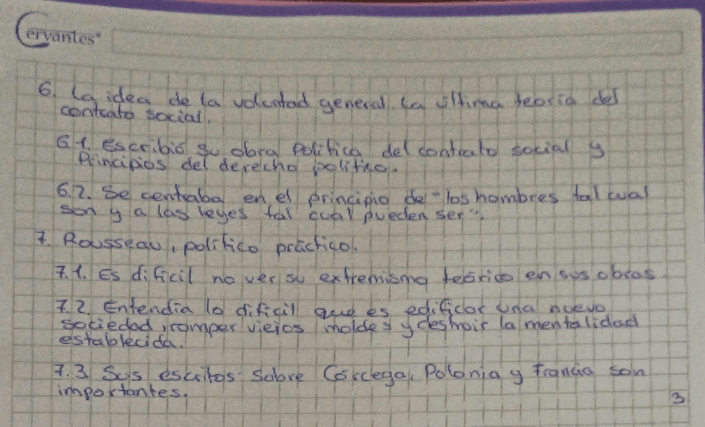 Cervantes®
6. La idea de la voluntad general. La última teoría del
contrato social.
6.1. Escribió su obra Política del contrato social y
Principios del derecho político.
6.2. Se centraba en el principio de "los hombres tal cual
son y a las leyes tal cual pueden ser".
7. Rousseau, político práctico.
7.1. Es difícil no ver su extremismo teórico en sus obras
7.2. Entendía lo difícil que es edificar una nueva
sociedad, romper viejos moldes y destruir la mentalidad
establecida.
7.3 Sus escritos sobre Córcega, Polonia y Francia son
importantes.
3